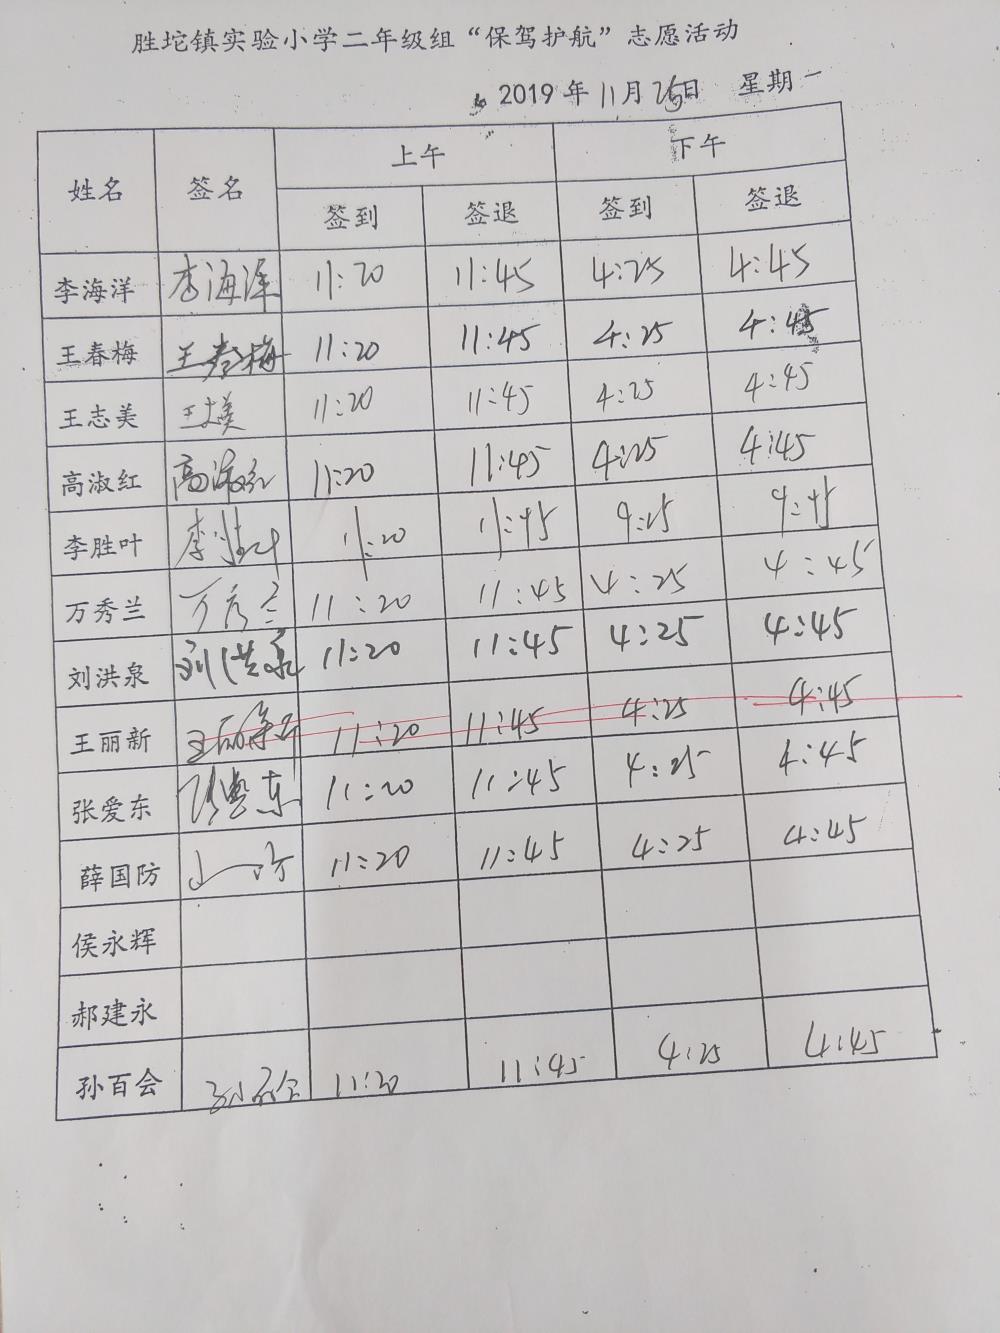 胜坨镇实验小学二年级组“保驾护航”志愿活动
2019年11月25日 星期一
姓名 签名 上午 下午
签到 签退 签到 签退
李海洋 李海洋 11:20 11:45 4:25 4:45
王春梅 王春梅 11:20 11:45 4:25 4:45
王志美 王志美 11:20 11:45 4:25 4:45
高淑红 高淑红 11:20 11:45 4:25 4:45
李胜叶 李胜叶 11:20 11:45 4:25 4:45
万秀兰 万秀兰 11:20 11:45 4:25 4:45
刘洪泉 刘洪泉 11:20 11:45 4:25 4:45
王丽新 11:20 11:45 4:25 4:45
张爱东 张爱东 11:20 11:45 4:25 4:45
薛国防 11:20 11:45 4:25 4:45
侯永辉
郝建永
孙百会 孙百会 11:20 11:45 4:25 4:45